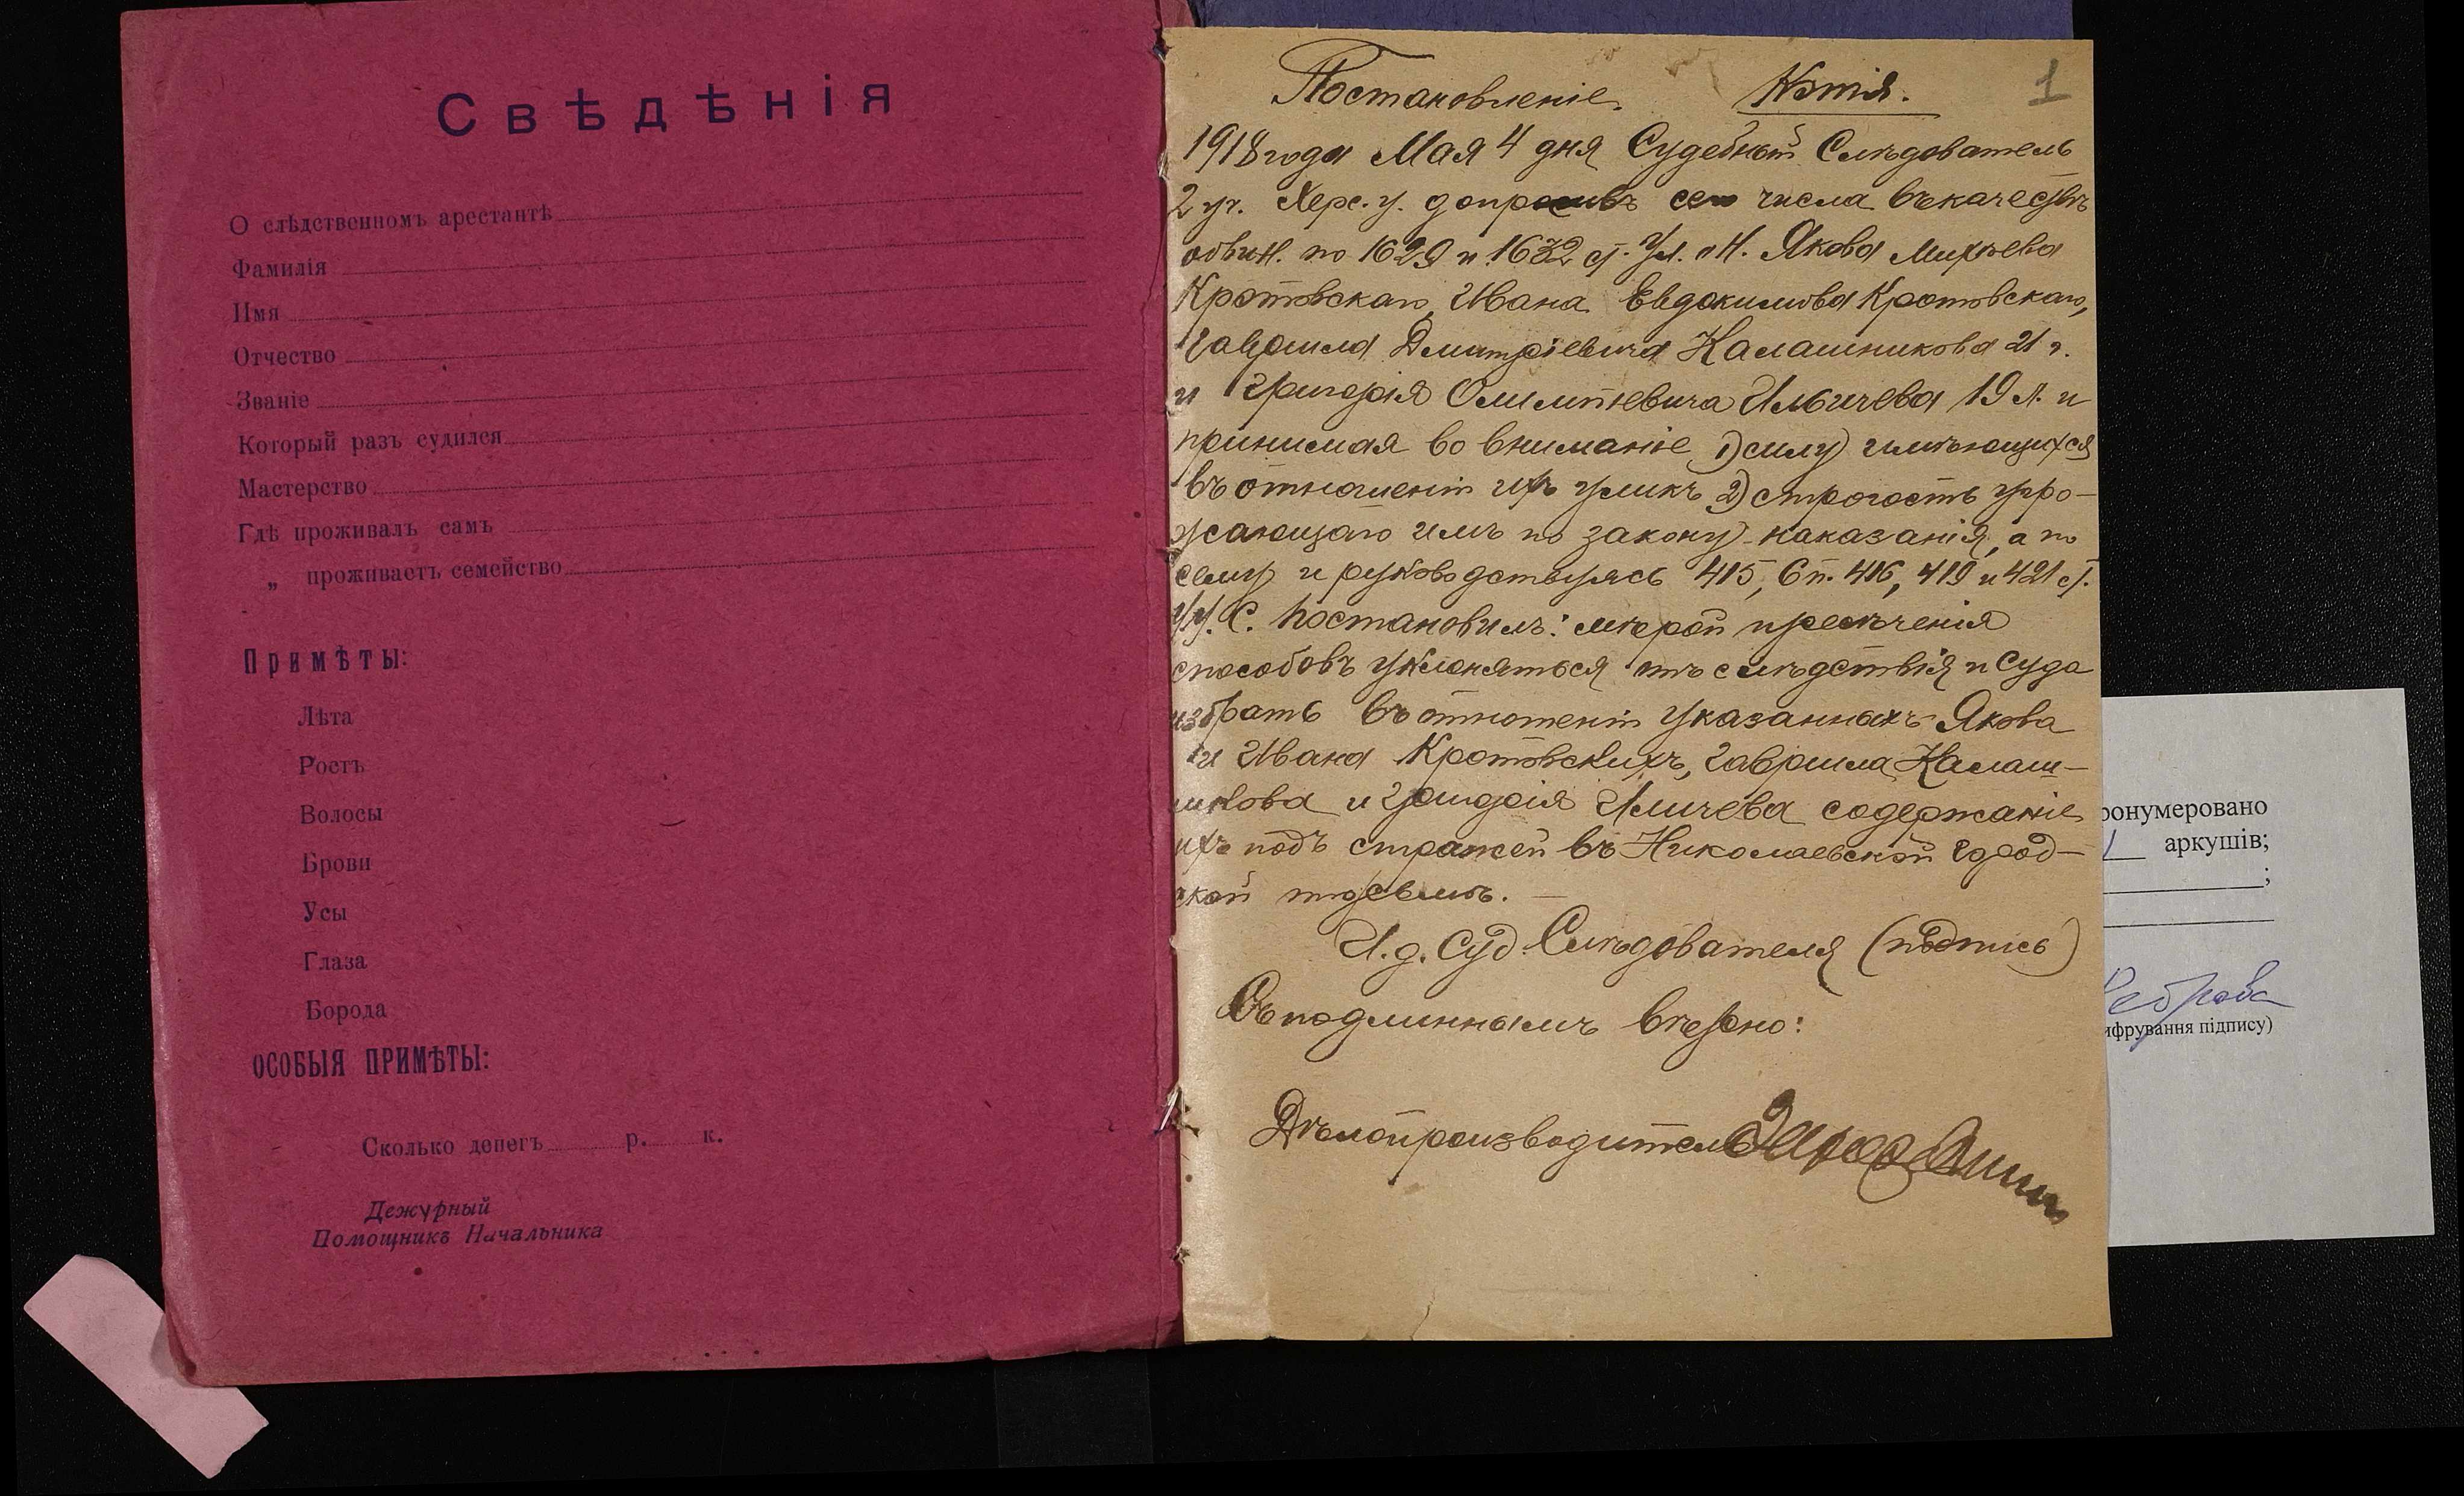 Свѣдѣнія
О слѣдственномъ арестантѣ
Фамилія
Имя
Отчество
Званіе
Который разъ судился
Мастерство
Гдѣ проживалъ самъ
„ проживаетъ семейство
Примѣты:
Лѣта
Ростъ
Волосы
Брови
Усы
Глаза
Борода
ОСОБЫЯ ПРИМѢТЫ:
Сколько денегъ р. к.
Дежурный
Помощникъ Начальника
Постановленіе. Копія. 1
1918 года Мая 4 дня Судебный Слѣдователь
2 уч. Херс. у. допросивъ сего числа въ качествѣ
обвин. по 1629 и 1632 ст. Ул. о Н. Якова Михѣева
Кротовскаго, Ивана Евдокимова Кротовскаго,
Гавриила Дмитріевича Калашникова 21 г.
и Григорія Олимпіевича Ильичева 19 л. и
принимая во вниманіе 1) силу имѣющихся
въ отношеніи ихъ уликъ 2) строгость угро-
жающаго имъ по закону наказанія, а по
сему и руководствуясь 415, 6 п. 416, 419 и 421 ст.
У.У.С. постановилъ: мѣрой пресѣченія
способовъ уклоняться отъ слѣдствія и суда
избрать въ отношеніи указанныхъ Якова
и Ивана Кротовскихъ, Гавриила Калаш-
никова и Григорія Иличева содержаніе
ихъ подъ стражей въ Николаевской город-
ской тюрьмѣ. —
И. д. Суд. Слѣдователя (подпись)
Съ подлиннымъ вѣрно:
Дѣлопроизводитель
ронумеровано
аркушів;
;
Реброва
ифрування підпису)